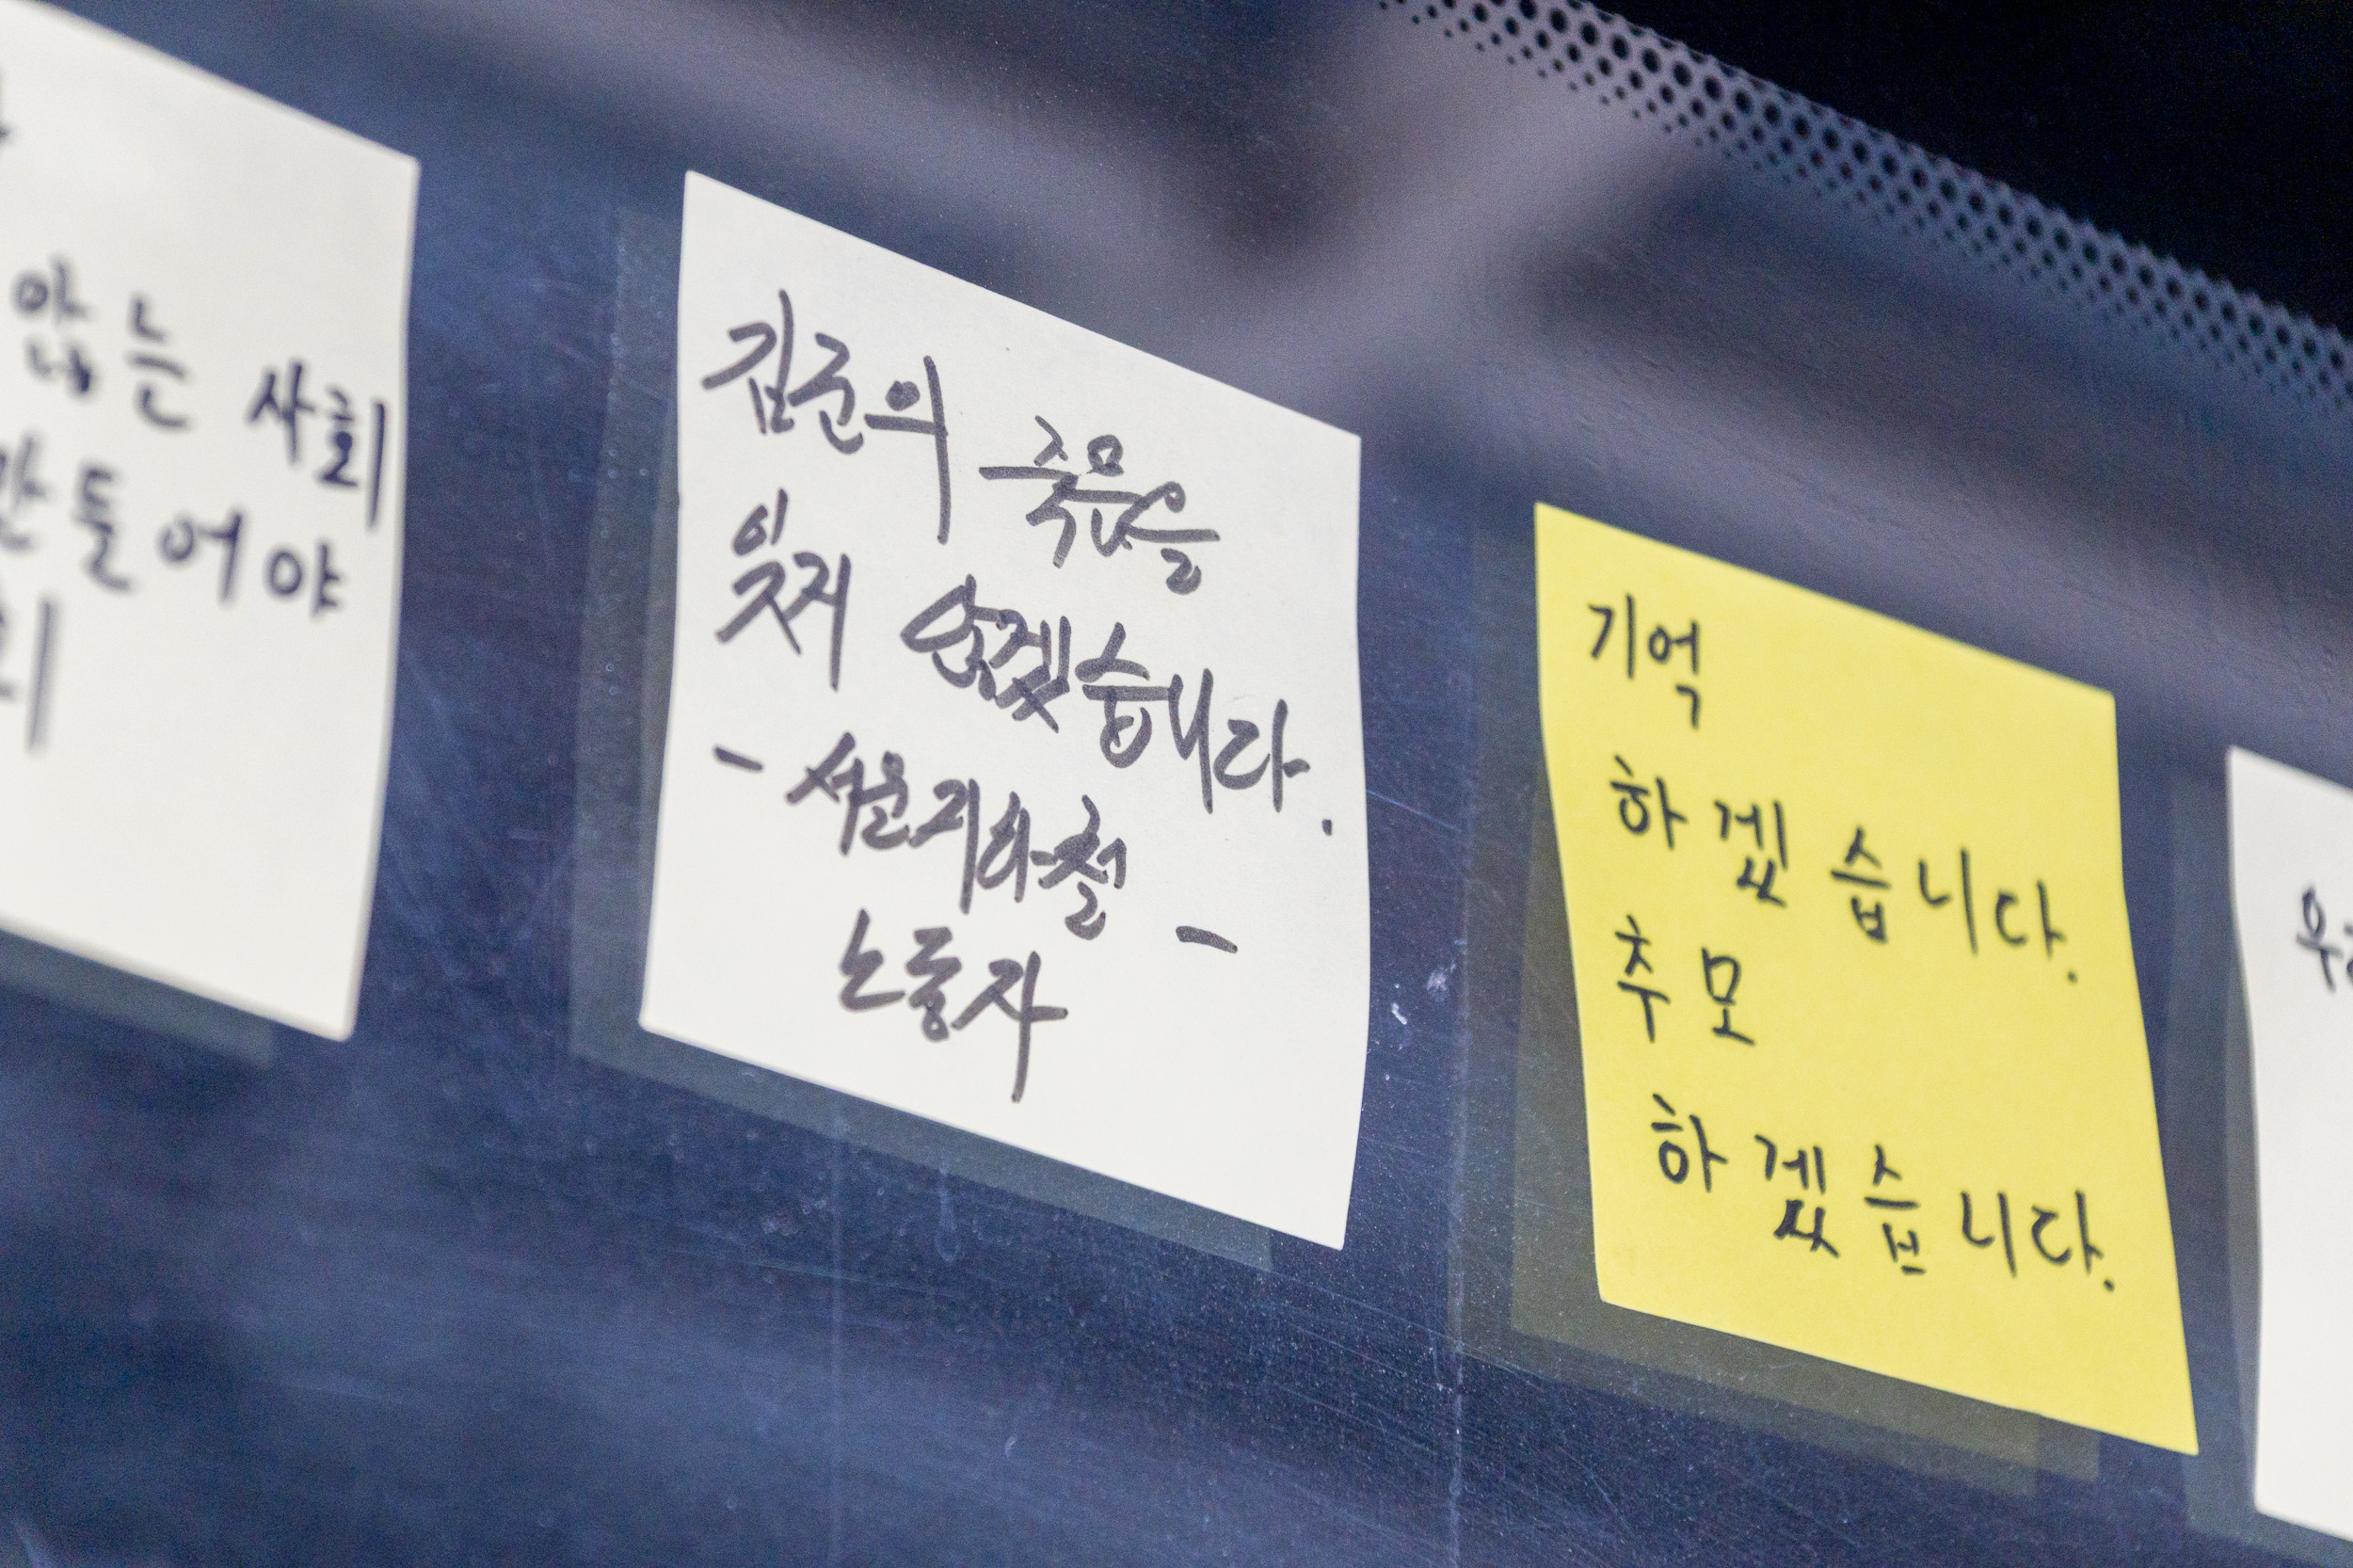 않는 사회
만들어야
김군의 죽음을
잊지 않겠습니다.
- 서울지하철
노동자 -
기억
하겠습니다.
추모
하겠습니다.